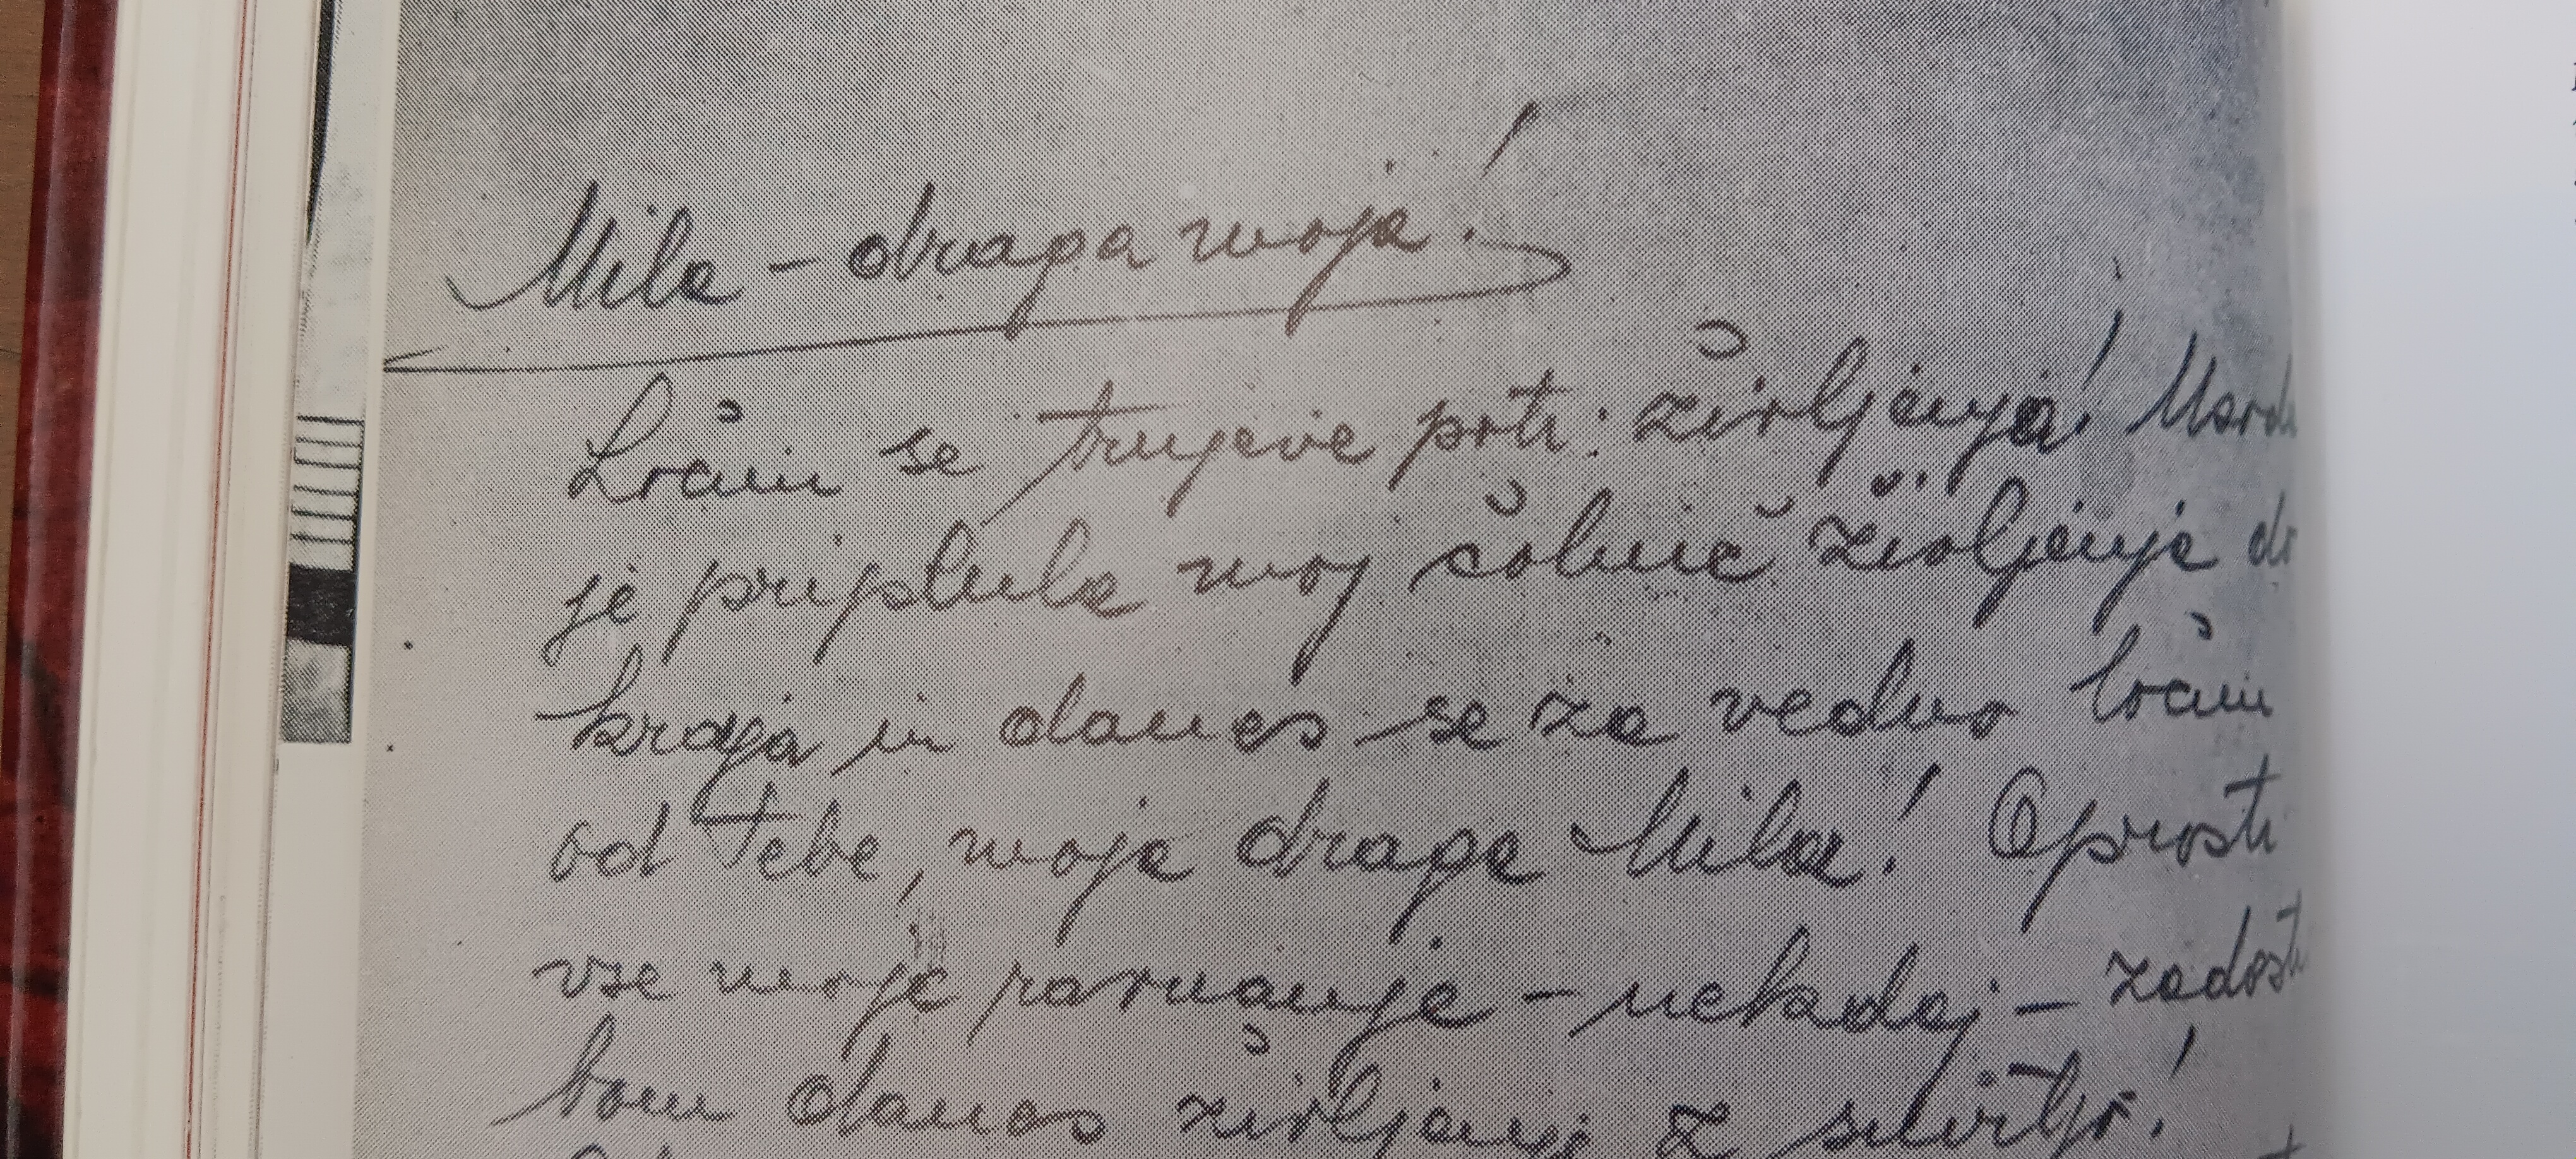 Mila – draga moja!
Ločim se trnjeve poti življenja! Morda
je priplula moj čolnič življenja do
kraja in danes se za vedno ločim
od Tebe, moja draga Mila! Oprosti
vse moje ravnanje – nekdaj – zadosti
bom danes življenj z smrtjo!